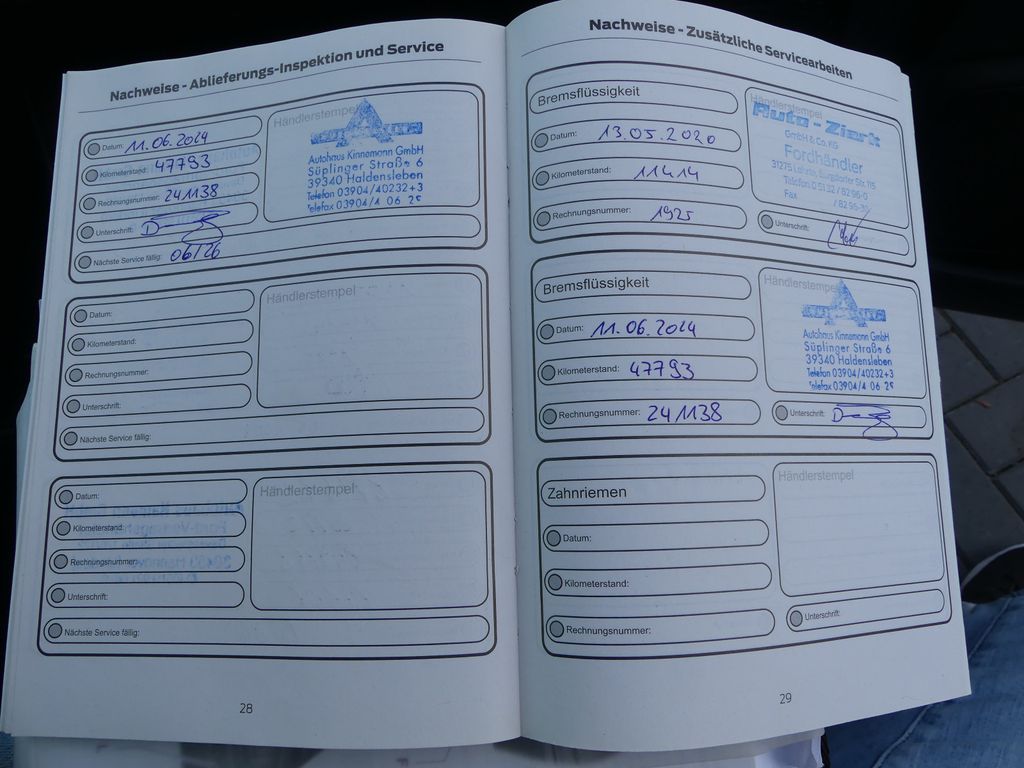 Nachweise - Ablieferungs-Inspektion und Service
Datum: 11.06.2024
Kilometerstand: 47793
Rechnungsnummer: 241138
Unterschrift:
Nächste Service fällig: 06/26
Händlerstempel
Autohaus Kinnemann GmbH
Süplinger Straße 6
39340 Haldensleben
Telefon 03904/40232+3
Telefax 03904/4 06 25
Datum:
Kilometerstand:
Rechnungsnummer:
Unterschrift:
Nächste Service fällig:
Händlerstempel
Datum:
Kilometerstand:
Rechnungsnummer:
Unterschrift:
Nächste Service fällig:
Händlerstempel
28
Nachweise - Zusätzliche Servicearbeiten
Bremsflüssigkeit
Datum: 13.05.2020
Kilometerstand: 11414
Rechnungsnummer: 1925
Händlerstempel
Auto - Ziert
GmbH & Co. KG
Fordhändler
31275 Lehrte, Burgdorfer Str. 115
Telefon 0 51 32 / 82 96-0
Fax / 82 96-30
Unterschrift:
Bremsflüssigkeit
Datum: 11.06.2024
Kilometerstand: 47793
Rechnungsnummer: 241138
Händlerstempel
Autohaus Kinnemann GmbH
Süplinger Straße 6
39340 Haldensleben
Telefon 03904/40232+3
Telefax 03904/4 06 25
Unterschrift:
Zahnriemen
Datum:
Kilometerstand:
Rechnungsnummer:
Händlerstempel
Unterschrift:
29